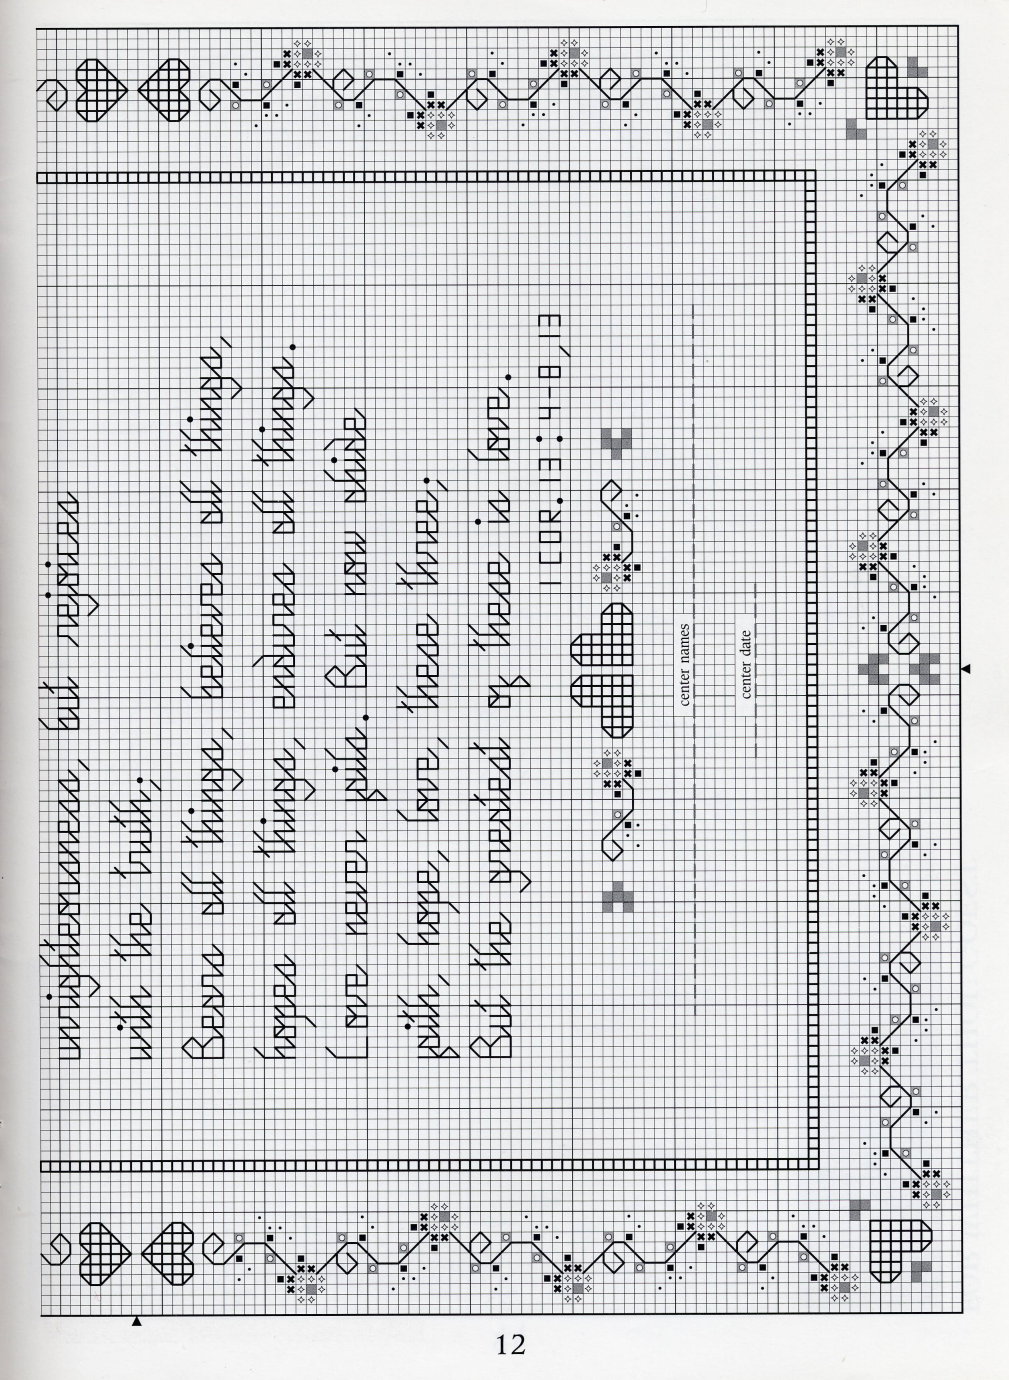 unrighteousness, but rejoices
with the truth;
Bears all things, believes all things,
hopes all things, endures all things.
Love never fails. But now abide
faith, hope, love, these three;
But the greatest of these is love.
I COR. 13:4-8, 13
center names
center date
12